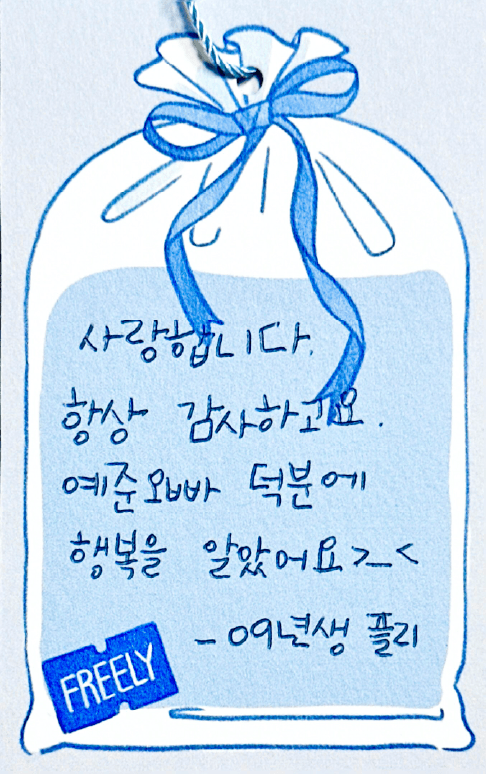 사랑합니다.
항상 감사하고요.
예준오빠 덕분에
행복을 알았어요>_<
- 09년생 플리
FREELY